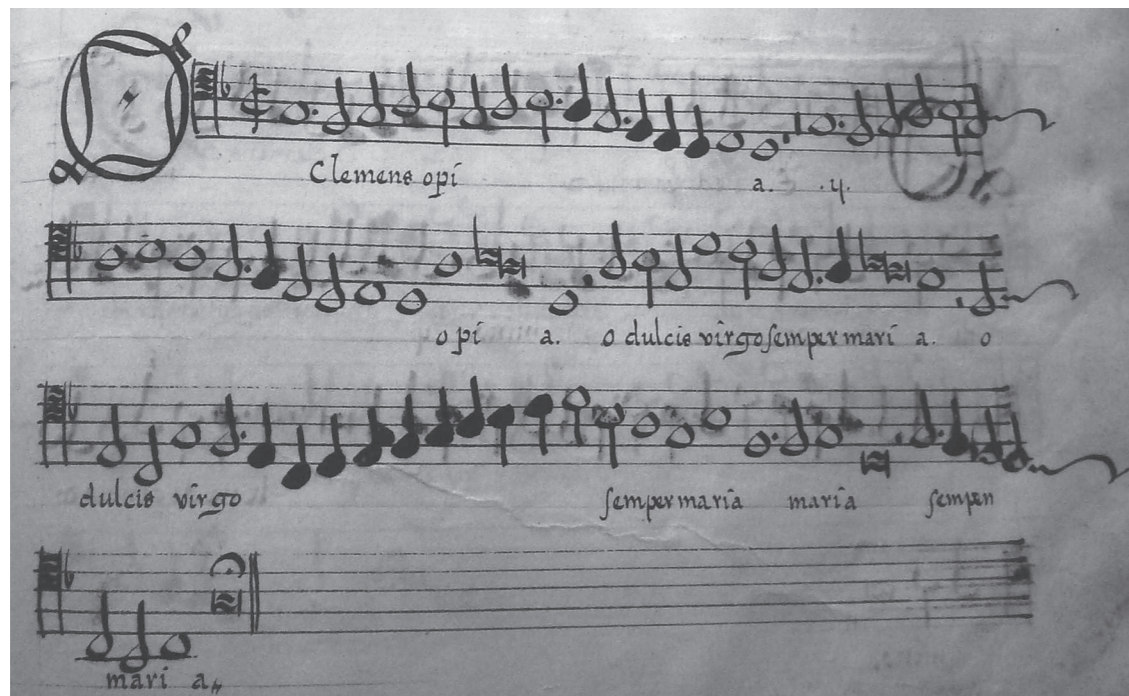 O
Clemens o pi a. .ij.
o pi a. o dulcis virgo semper mari a. o
dulcis virgo semper maria maria semper
mari a